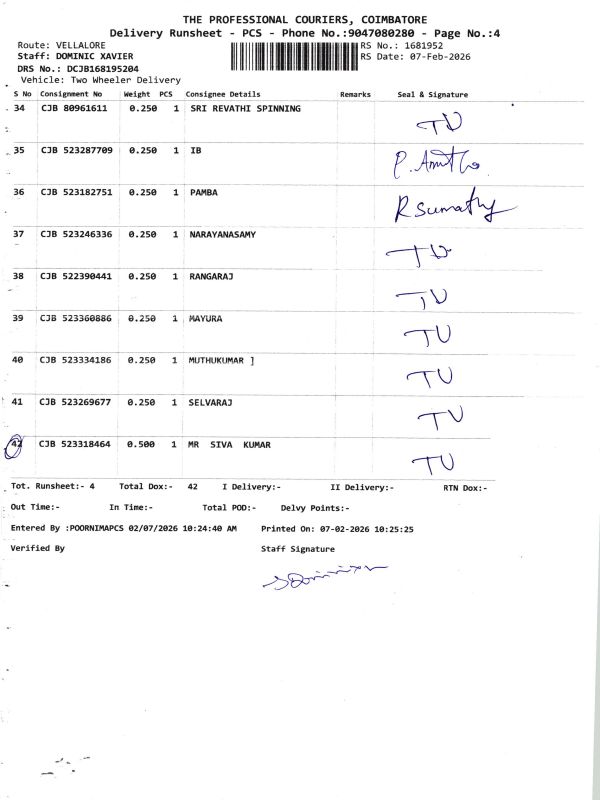 THE PROFESSIONAL COURIERS, COIMBATORE
Delivery Runsheet - PCS - Phone No.:9047080280 - Page No.:4
Route: VELLALORE RS No.: 1681952
Staff: DOMINIC XAVIER RS Date: 07-Feb-2026
DRS No.: DCJB168195204
Vehicle: Two Wheeler Delivery
S No Consignment No Weight PCS Consignee Details Remarks Seal & Signature
34 CJB 80961611 0.250 1 SRI REVATHI SPINNING TU
35 CJB 523287709 0.250 1 IB P. Amutha
36 CJB 523182751 0.250 1 PAMBA R Sumathy
37 CJB 523246336 0.250 1 NARAYANASAMY TU
38 CJB 522390441 0.250 1 RANGARAJ TU
39 CJB 523360886 0.250 1 MAYURA TU
40 CJB 523334186 0.250 1 MUTHUKUMAR ] TU
41 CJB 523269677 0.250 1 SELVARAJ TU
42 CJB 523318464 0.500 1 MR SIVA KUMAR TU
Tot. Runsheet:- 4 Total Dox:- 42 I Delivery:- II Delivery:- RTN Dox:-
Out Time:- In Time:- Total POD:- Delvy Points:-
Entered By :POORNIMAPCS 02/07/2026 10:24:40 AM Printed On: 07-02-2026 10:25:25
Verified By Staff Signature